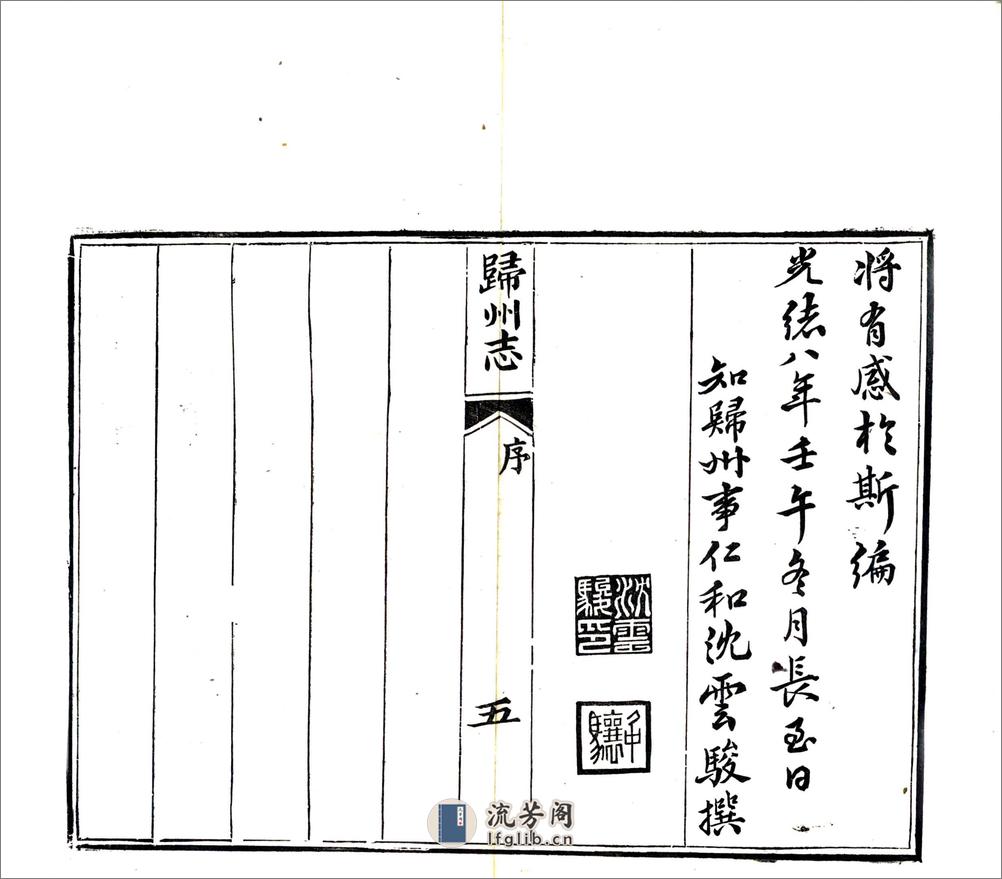 将有感於斯编
光绪八年壬午冬月長至日
知歸州事仁和沈雲駿撰
沈雲駿印
歸州志
序
五
流芳阁
lfglib.cn